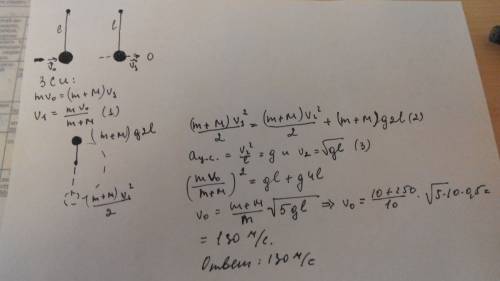 l
l
v₀
v₁
0
ЗСИ:
mv₀ = (m+M)v₁
v₁ = mv₀/(m+M) (1)
(m+M)g2l
(m+M)v₁²/2
(m+M)v₁²/2 = (m+M)v₂²/2 + (m+M)g2l (2)
aц.с. = v₂²/l = g и v₂ = √gl (3)
(mv₀/(m+M))² = gl + g4l
v₀ = (m+M)/m √5gl ⇒ v₀ = (10+250)/10 · √5·10·0,5 =
= 130 м/с.
Ответ: 130 м/с